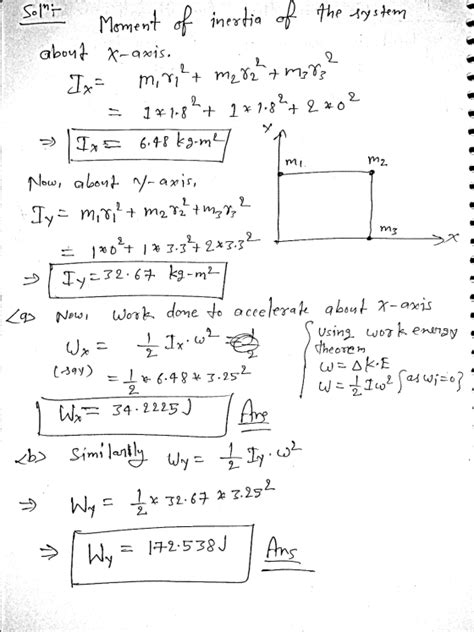 Solⁿ:- Moment of inertia of the system
about x-axis.
Ix = m₁r₁² + m₂r₂² + m₃r₃²
= 1*1.8² + 1*1.8² + 2*0²
⇒ Ix = 6.48 kg-m²
Y
m₁ m₂
m₃
X
Now, about y-axis,
Iy = m₁r₁² + m₂r₂² + m₃r₃²
= 1*0² + 1*3.3² + 2*3.3²
⇒ Iy = 32.67 kg-m²
<a> Now, work done to accelerate about x-axis
Wx = 1/2 Ix.ω²
(say) = 1/2 * 6.48 * 3.25²
Wx = 34.2225J Ans
{ Using work energy
theorem
W = ΔK.E
W = 1/2 Iω² {as wi=0}
<b> Similarly Wy = 1/2 Iy.ω²
⇒ Wy = 1/2 * 32.67 * 3.25²
⇒ Wy = 172.538J Ans